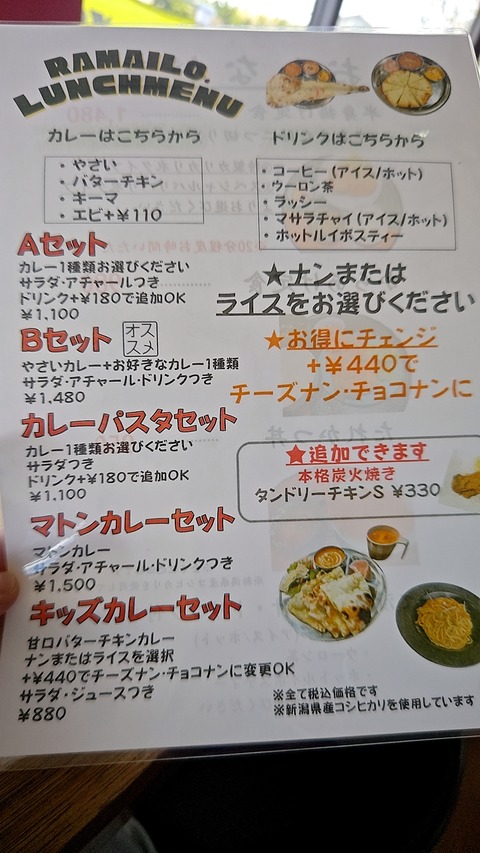 RAMAILO.
LUNCHMENU
カレーはこちらから
・やさい
・バターチキン
・キーマ
・エビ+¥110
ドリンクはこちらから
・コーヒー(アイス/ホット)
・ウーロン茶
・ラッシー
・マサラチャイ(アイス/ホット)
・ホットルイボスティー
Aセット
カレー1種類お選びください
サラダ・アチャールつき
ドリンク+¥180で追加OK
¥1,100
Bセット オススメ
やさいカレー+お好きなカレー1種類
サラダ・アチャール・ドリンクつき
¥1,480
カレーパスタセット
カレー1種類お選びください
サラダつき
ドリンク+¥180で追加OK
¥1,100
マトンカレーセット
マトンカレー
サラダ・アチャール・ドリンクつき
¥1,500
キッズカレーセット
甘口バターチキンカレー
ナンまたはライスを選択
+¥440でチーズナン・チョコナンに変更OK
サラダ・ジュースつき
¥880
★ナンまたは
ライスをお選びください
★お得にチェンジ
+¥440で
チーズナン・チョコナンに
★追加できます
本格炭火焼き
タンドリーチキンS ¥330
※全て税込価格です
※新潟県産コシヒカリを使用しています